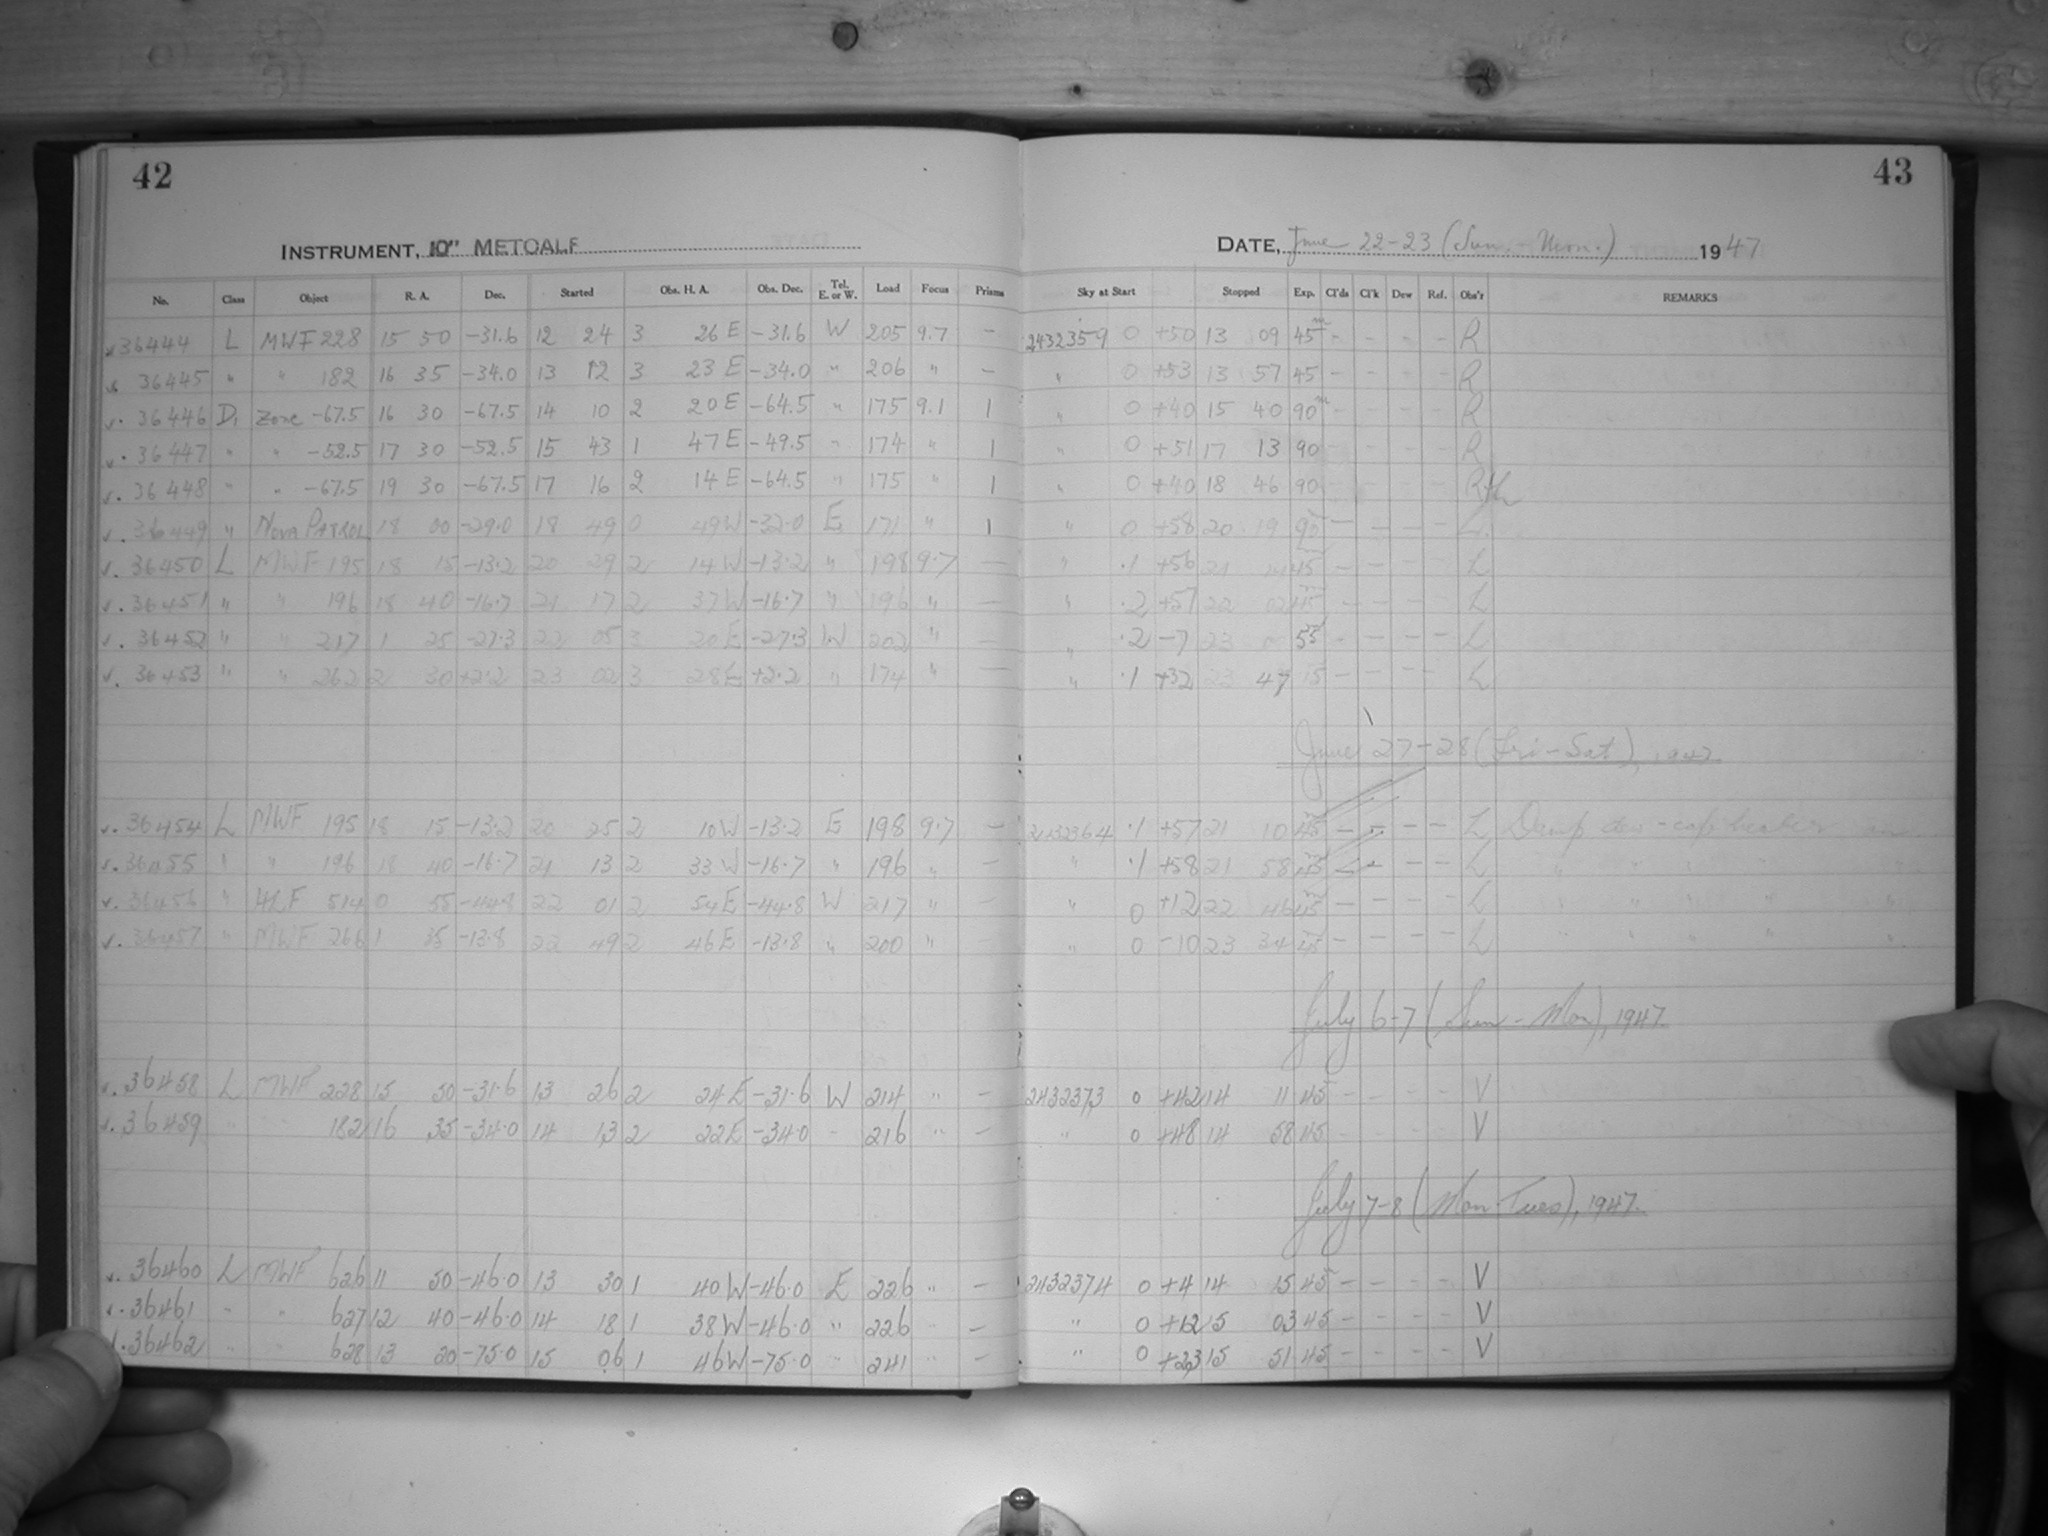 42
INSTRUMENT, 10" METCALF
No. Class Object R. A. Dec. Started Obs. H. A. Obs. Dec. Tel. E. or W. Load Focus Prisms
36444 L MWF 228 15 50 -31.6 12 24 3 26 E -31.6 W 205 9.7 -
36445 " " 182 16 35 -34.0 13 12 3 23 E -34.0 " 206 " -
36446 D1 Zone -67.5 16 30 -67.5 14 10 2 20 E -64.5 " 175 9.1 1
36447 " " -52.5 17 30 -52.5 15 43 1 47 E -49.5 " 174 " 1
36448 " " -67.5 19 30 -67.5 17 16 2 14 E -64.5 " 175 " 1
36449 " NOVA PATROL 18 00 -29.0 18 49 0 49 W -32.0 E 171 " 1
36450 L MWF 195 18 15 -13.2 20 29 2 14 W -13.2 " 198 9.7 -
36451 " " 196 18 40 -16.7 21 17 2 37 W -16.7 " 196 " -
36452 " " 217 1 25 -27.3 22 05 3 20 E -27.3 W 202 " -
36453 " " 262 2 30 +2.2 23 02 3 28 E +2.2 " 174 " -
36454 L MWF 195 18 15 -13.2 20 25 2 10 W -13.2 E 198 9.7 -
36455 " " 196 18 40 -16.7 21 13 2 33 W -16.7 " 196 " -
36456 " HLF 514 0 55 -44.8 22 01 2 54 E -44.8 W 217 " -
36457 " MWF 266 1 35 -13.8 22 49 2 46 E -13.8 " 200 " -
36458 L MWF 228 15 50 -31.6 13 26 2 24 E -31.6 W 214 " -
36459 " " 182 16 35 -34.0 14 13 2 22 E -34.0 " 216 " -
36460 L MWF 626 11 50 -46.0 13 30 1 40 W -46.0 E 226 " -
36461 " " 627 12 40 -46.0 14 18 1 38 W -46.0 " 226 " -
36462 " " 628 13 20 -75.0 15 06 1 46 W -75.0 " 241 " -
43
DATE, June 22-23 (Sun. - Mon.) 1947
Sky at Start Stopped Exp. Cl'ds Cl'k Dew Ref. Obs'r REMARKS
2432359 0 +50 13 09 45m - - - - R
" 0 +53 13 57 45 - - - - R
" 0 +40 15 40 90m - - - - R
" 0 +51 17 13 90 - - - - R
" 0 +40 18 46 90 - - - -
" 0 +58 20 19 90 - - - - L
" .1 +56 21 45 - - - - L
" .2 +57 22 02 45 - - - - L
" .2 -7 23 55 - - - - L
" .1 +32 23 47 - - - - L
June 27-28 (Fri - Sat), 1947
2432364 .1 +57 21 10 45 - - - - L Damp dew-cap heater on
" .1 +58 21 58 45 - - - L " " " "
" 0 +12 22 46 45 - - - - L " " " "
" 0 -10 23 34 45 - - - - L " " " "
July 6-7 (Sun - Mon), 1947.
2432373 0 +42 14 11 45 - - - - V
" 0 +48 14 58 45 - - - - V
July 7-8 (Mon-Tues), 1947.
2432374 0 +4 14 15 45 - - - - V
" 0 +12 15 03 45 - - - - V
" 0 +23 15 51 45 - - - - V